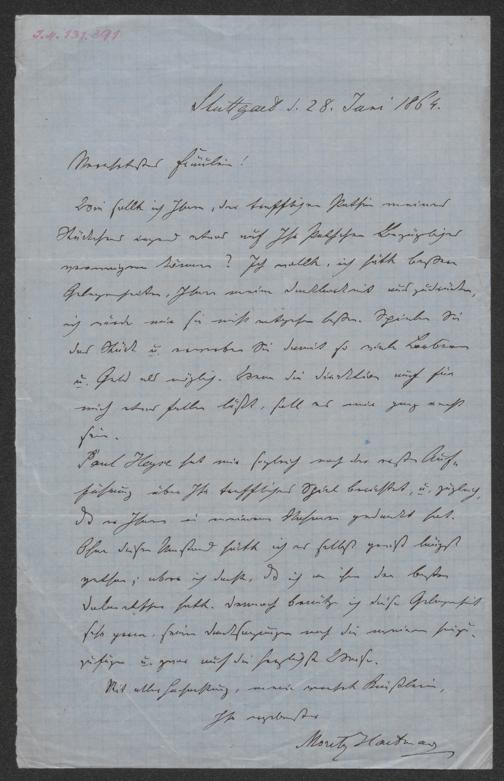 I.N. 131.391
Stuttgart d. 28. Juni 1864.
Verehrtestes Fräulein!
Wie sollt ich Ihnen, der trefflichen Pathin meines
Stückchens irgend etwas auf Ihr Patchen Bezügliches
verweigern können? Ich wollte, ich hätte bessere
Gelegenheiten, Ihnen meine Dankbarkeit auszudrücken,
ich würde mir sie nicht entgehen lassen. Spielen Sie
das Stück u. erwerben Sie damit so viele Lorbeeren
u. Geld als möglich. Wenn die Direktion auch für
mich etwas fallen läßt, soll es mir ganz recht
sein.
Paul Heyse hat mir sogleich nach der ersten Auf-
führung über Ihr treffliches Spiel berichtet, u. zugleich,
daß er Ihnen in meinem Namen gedankt hat.
Ohne diesen Umstand hätte ich es selbst gewiß längst
gethan; aber ich dachte, daß ich an ihm den besten
Dolmetscher hatte. Dennoch benütze ich diese Gelegenheit
sehr gern, seinen Danksagungen noch die meinen hinzu-
zufügen u. zwar auf die herzlichste Weise.
Mit aller Hochachtung, mein verehrtes Fräulein,
Ihr ergebenster
Moritz Hartmann